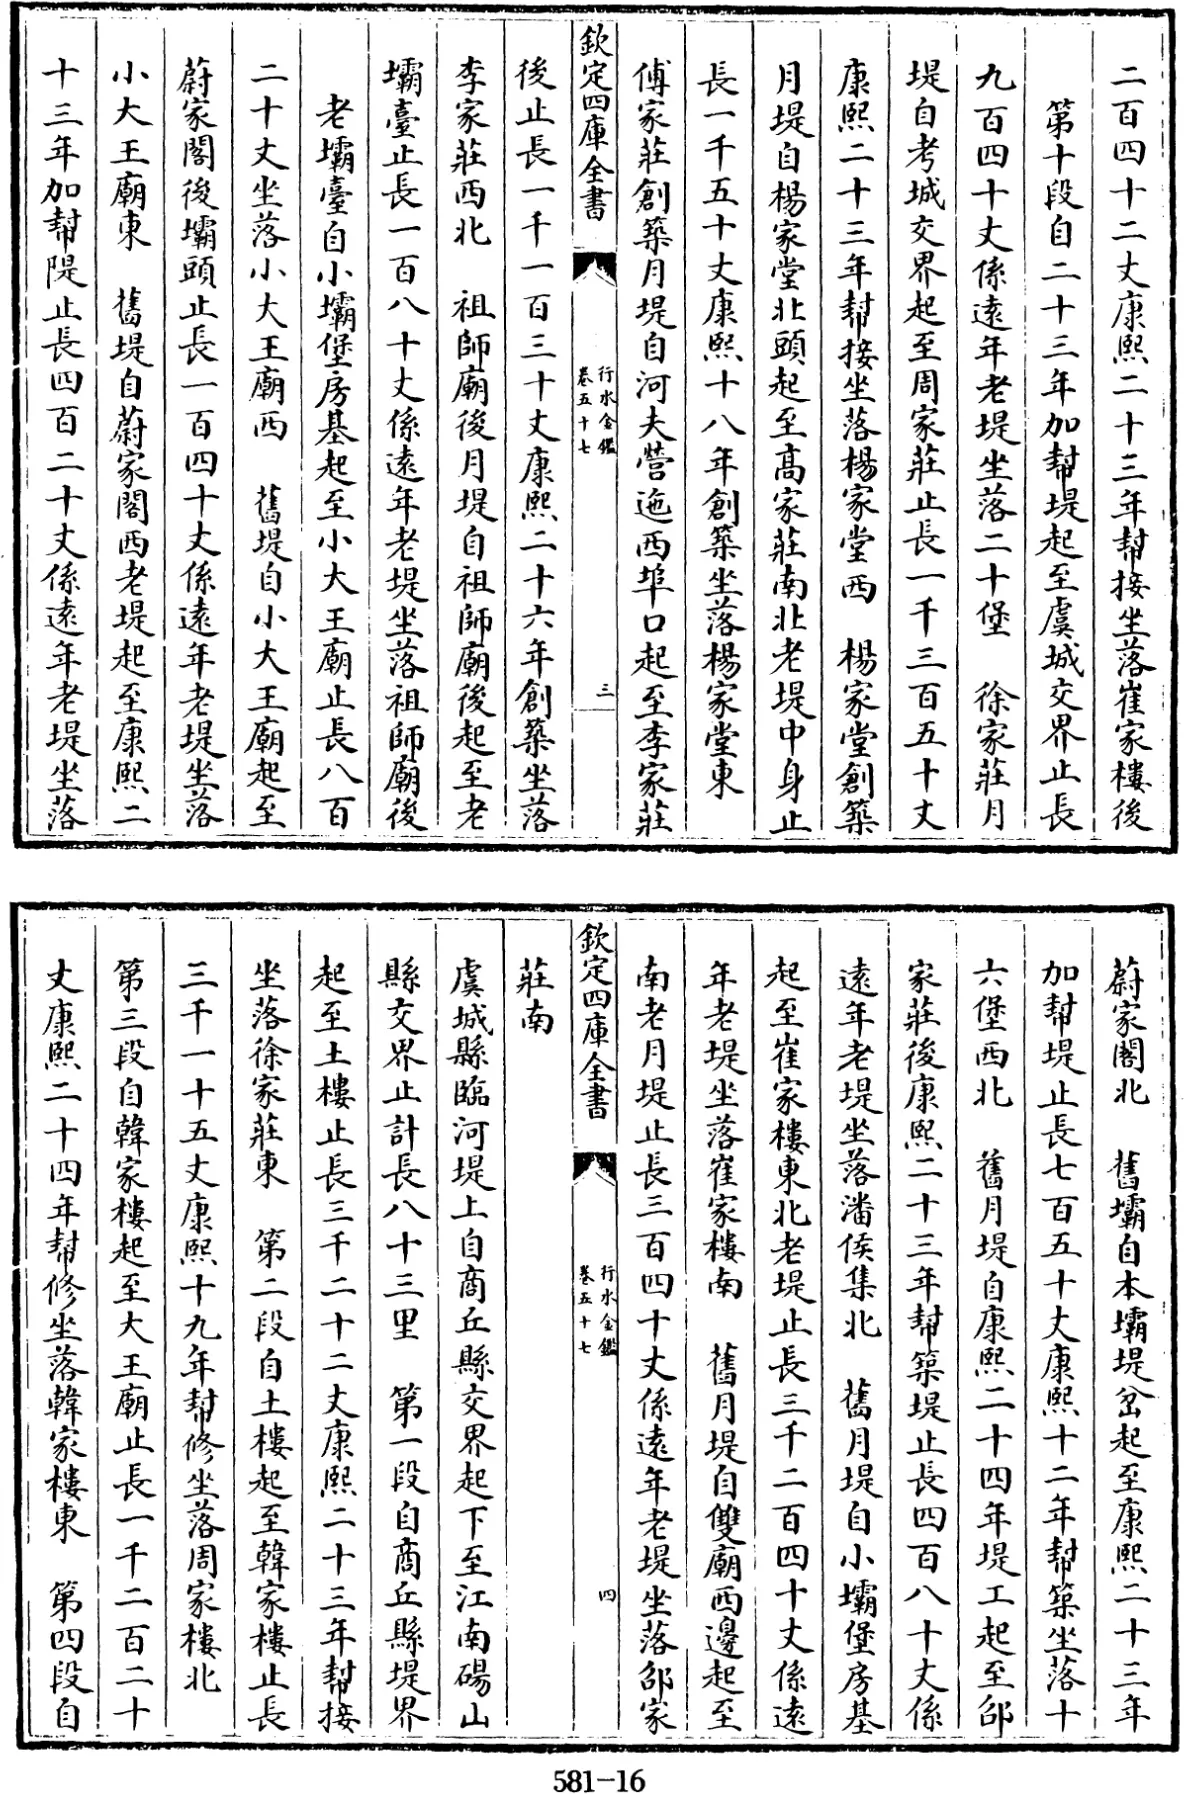 二百四十二丈康熙二十三年幇接坐落崔家樓後
第十段自二十三年加幇堤起至虞城交界止長
九百四十丈係遠年老堤坐落二十堡　徐家莊月
堤自考城交界起至周家莊止長一千三百五十丈
康熙二十三年幇接坐落楊家堂西　楊家堂創築
月堤自楊家堂北頭起至髙家莊南北老堤中身止
長一千五十丈康熙十八年創築坐落楊家堂東
傅家莊創築月堤自河夫營迤西埠口起至李家莊
欽定四庫全書
行水金鑑
卷五十七
三
後止長一千一百三十丈康熙二十六年創築坐落
李家莊西北　祖師廟後月堤自祖師廟後起至老
壩臺止長一百八十丈係遠年老堤坐落祖師廟後
老壩臺自小壩堡房基起至小大王廟止長八百
二十丈坐落小大王廟西　舊堤自小大王廟起至
蔚家閣後壩頭止長一百四十丈係遠年老堤坐落
小大王廟東　舊堤自蔚家閣西老堤起至康熙二
十三年加幇隄止長四百二十丈係遠年老堤坐落
蔚家閣北　舊壩自本壩堤岔起至康熙二十三年
加幇堤止長七百五十丈康熙十二年幇築坐落十
六堡西北　舊月堤自康熙二十四年堤工起至邵
家莊後康熙二十三年幇築堤止長四百八十丈係
遠年老堤坐落潘侯集北　舊月堤自小壩堡房基
起至崔家樓東北老堤止長三千二百四十丈係遠
年老堤坐落崔家樓南　舊月堤自雙廟西邊起至
南老月堤止長三百四十丈係遠年老堤坐落邵家
欽定四庫全書
行水金鑑
卷五十七
四
莊南
虞城縣臨河堤上自商丘縣交界起下至江南碭山
縣交界止計長八十三里　第一段自商丘縣堤界
起至土樓止長三千二十二丈康熙二十三年幇接
坐落徐家莊東　第二段自土樓起至韓家樓止長
三千一十五丈康熙十九年幇修坐落周家樓北
第三段自韓家樓起至大王廟止長一千二百二十
丈康熙二十四年幇修坐落韓家樓東　第四段自
581-16